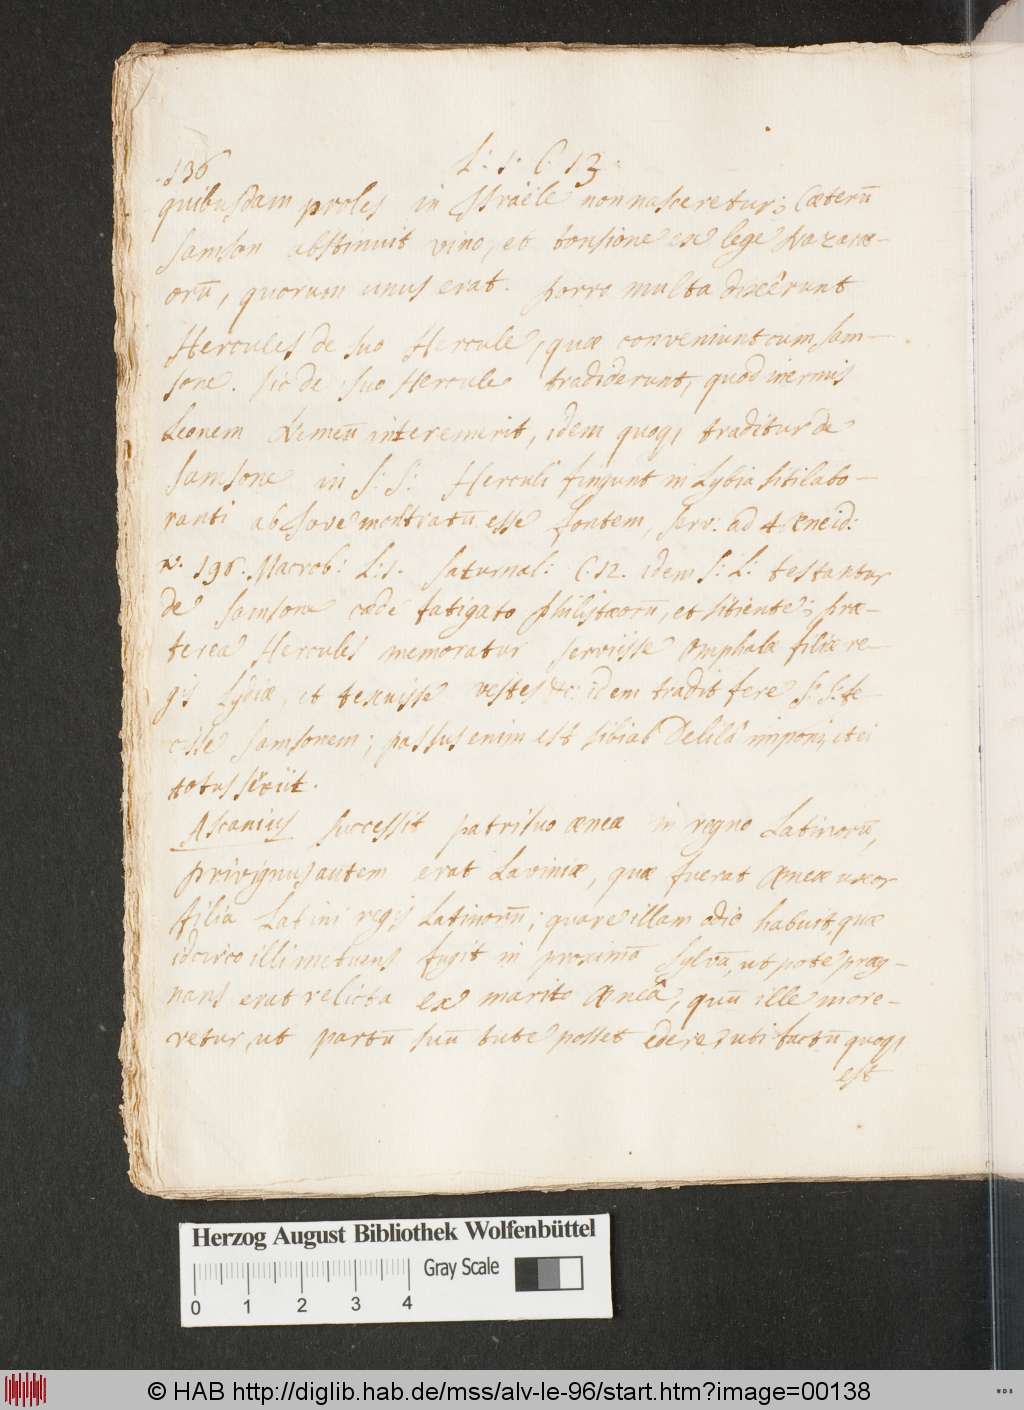 136
L: 1: C: 13.
quibusdam proles in Israële non nasceretur; Cæterū
Samson abstinuit vino, et tonsione ex lege Nazaræ-
orū, quorum unus erat. Porro multa dixêrunt
Hercules de suo Hercule, quæ conveniunt cum Sam-
sone. Sic de suo Hercule tradiderunt, quod inermis
Leonem Nemeū interemerit, idem quoq, traditur de
Samsone in S: S: Herculi fingunt in Lybia siti labo-
ranti ab Jove monstratū esse fontem, Serv: ad 4 Æneid:
v. 196. Macrob: L: 1. Saturnal: C. 12. idem S: L: testantur
de Samsone cæde fatigato Philistæorū, et sitiente; præ-
terea Hercules memoratur serviisse Omphalæ filiæ re-
gis Lydiæ, et texuisse vestes &c: idem tradit fere S: S: fe-
cisse Samsonem; passus enim est sibi ab Delilâ imponi, et ei
totus serviit.
Ascanius successit patri suo Æneæ in regno Latinorū,
privignus autem erat Laviniæ, quæ fuerat Æneæ uxor
filia Latini regis Latinorū; quare illam odio habuit, quæ
idcirco illi metuens fugit in proximā Sylvā, ut pote præg-
nans erat relicta ex marito Æneâ, quū ille more-
retur, ut partū suū tute posset edere, uti factū quoq,
est
Herzog August Bibliothek Wolfenbüttel
Gray Scale
0 1 2 3 4
© HAB http://diglib.hab.de/mss/alv-le-96/start.htm?image=00138